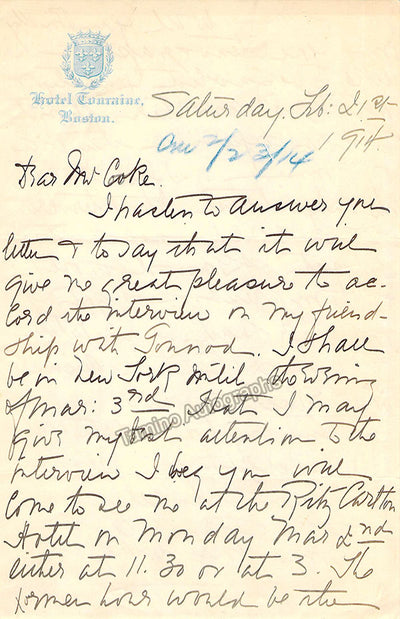 Hotel Touraine.
Boston.
Saturday, Feb: 21st
1914
ans 2/23/14
Dear Mr Coke.
I hasten to answer your
letter & to say that it will
give me great pleasure to ac-
cord the interview on my friend-
ship with Gounod. I shall
be in New York until the evening
of Mar: 3rd. That I may
give my best attention to the
interview I beg you will
come to see me at the Ritz Carlton
Hotel on Monday Mar 2nd
either at 11.30 or at 3. The
former hour would be the
Tamino Autographs